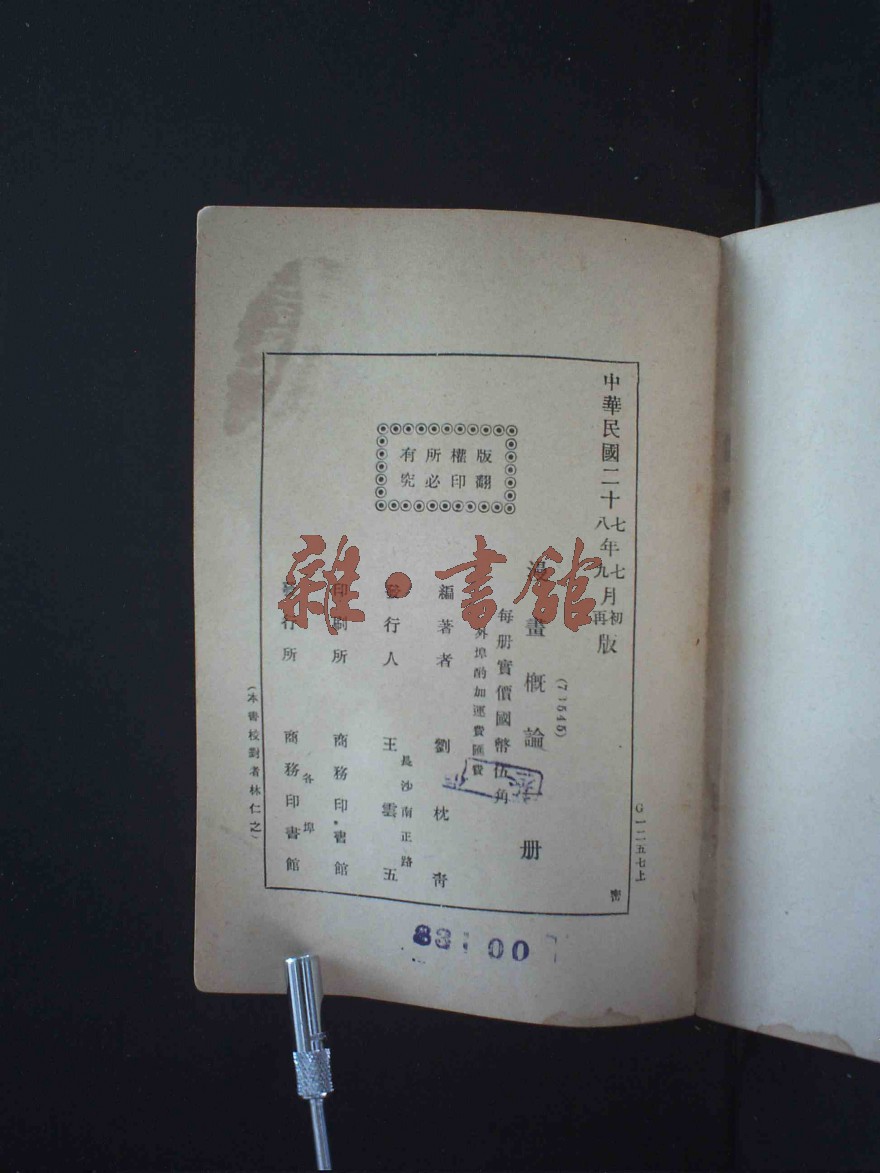 中華民國二十七年七月初版
八 九 再
G一二五七上
密
(71545)
漫畫概論 册
每册實價國幣伍角
外埠酌加運費匯費
版權所有
翻印必究
編著者 劉枕青
發行人 王雲五
長沙南正路
印刷所 商務印書館
發行所 商務印書館
各埠
(本書校對者林仁之)
雜·書館
00